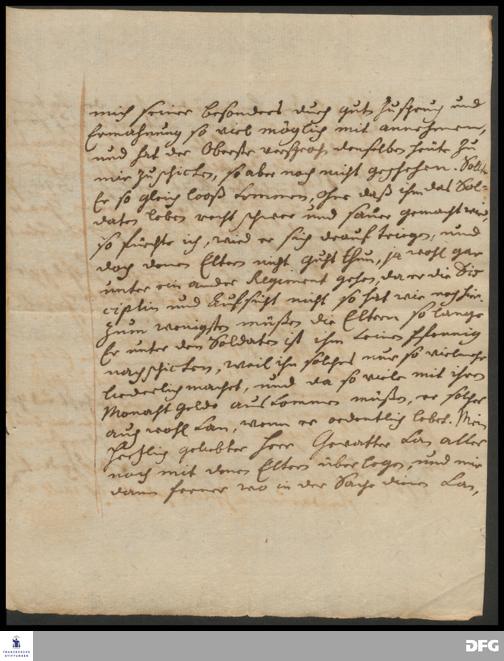 mich seiner besonders durch guten Zuspruch und
Ermahnung so viel möglich mit annehmen,
und hat der Obriste versproch. denselben heute zu
mir zu schicken, so aber noch nicht geschehen. Solte
Er so gleich looß kommen, ohne daß ihm das Sol-
daten leben recht schwer und sauer gemacht wird,
so fürchte ich, wird er sich drauf kriegen, und
doch denen Eltern nicht guht thun, ja wohl gar
unter ein ander Regiment gehen, da er die Dis
ciplin und Aufsicht nicht so hat wie noch hier.
Zum wenigsten müßen die Eltern so lange
Er unter den Soldaten ist ihm keinen Pfennig
nachschicken, weil ihn solches nur so vielmehr
liederlich machet, und da so viele mit ihren
Monaht Gelde auskommen müßen, er solches
auch wohl kan, wenn er ordentlich lebet. Mein
herzlich geliebter Herr Gevatter kan alles
noch mit denen Eltern überlegen, und mir
dann ferner wo in der Sache dienen kan,
FRANCKESCHE
STIFTUNGEN
DFG